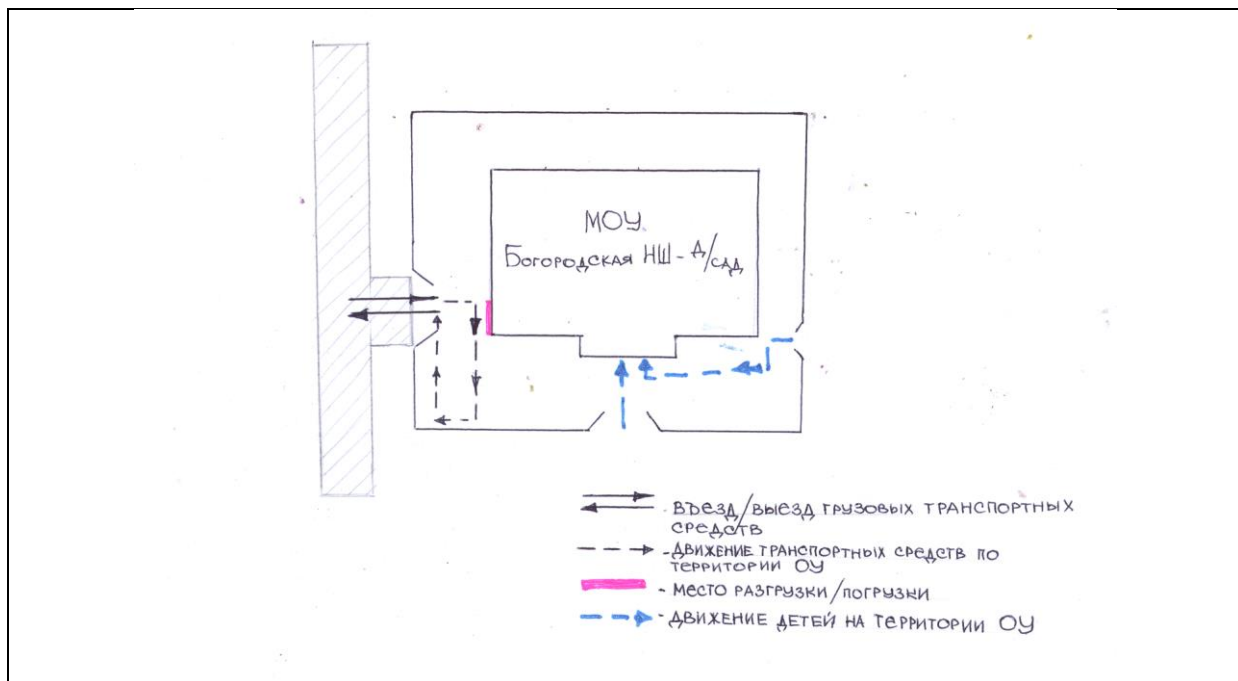 МОУ
Богородская НШ - д/сад
ВЪЕЗД/ВЫЕЗД ГРУЗОВЫХ ТРАНСПОРТНЫХ
СРЕДСТВ
- ДВИЖЕНИЕ ТРАНСПОРТНЫХ СРЕДСТВ ПО
ТЕРРИТОРИИ ОУ
- МЕСТО РАЗГРУЗКИ/ПОГРУЗКИ
- ДВИЖЕНИЕ ДЕТЕЙ НА ТЕРРИТОРИИ ОУ